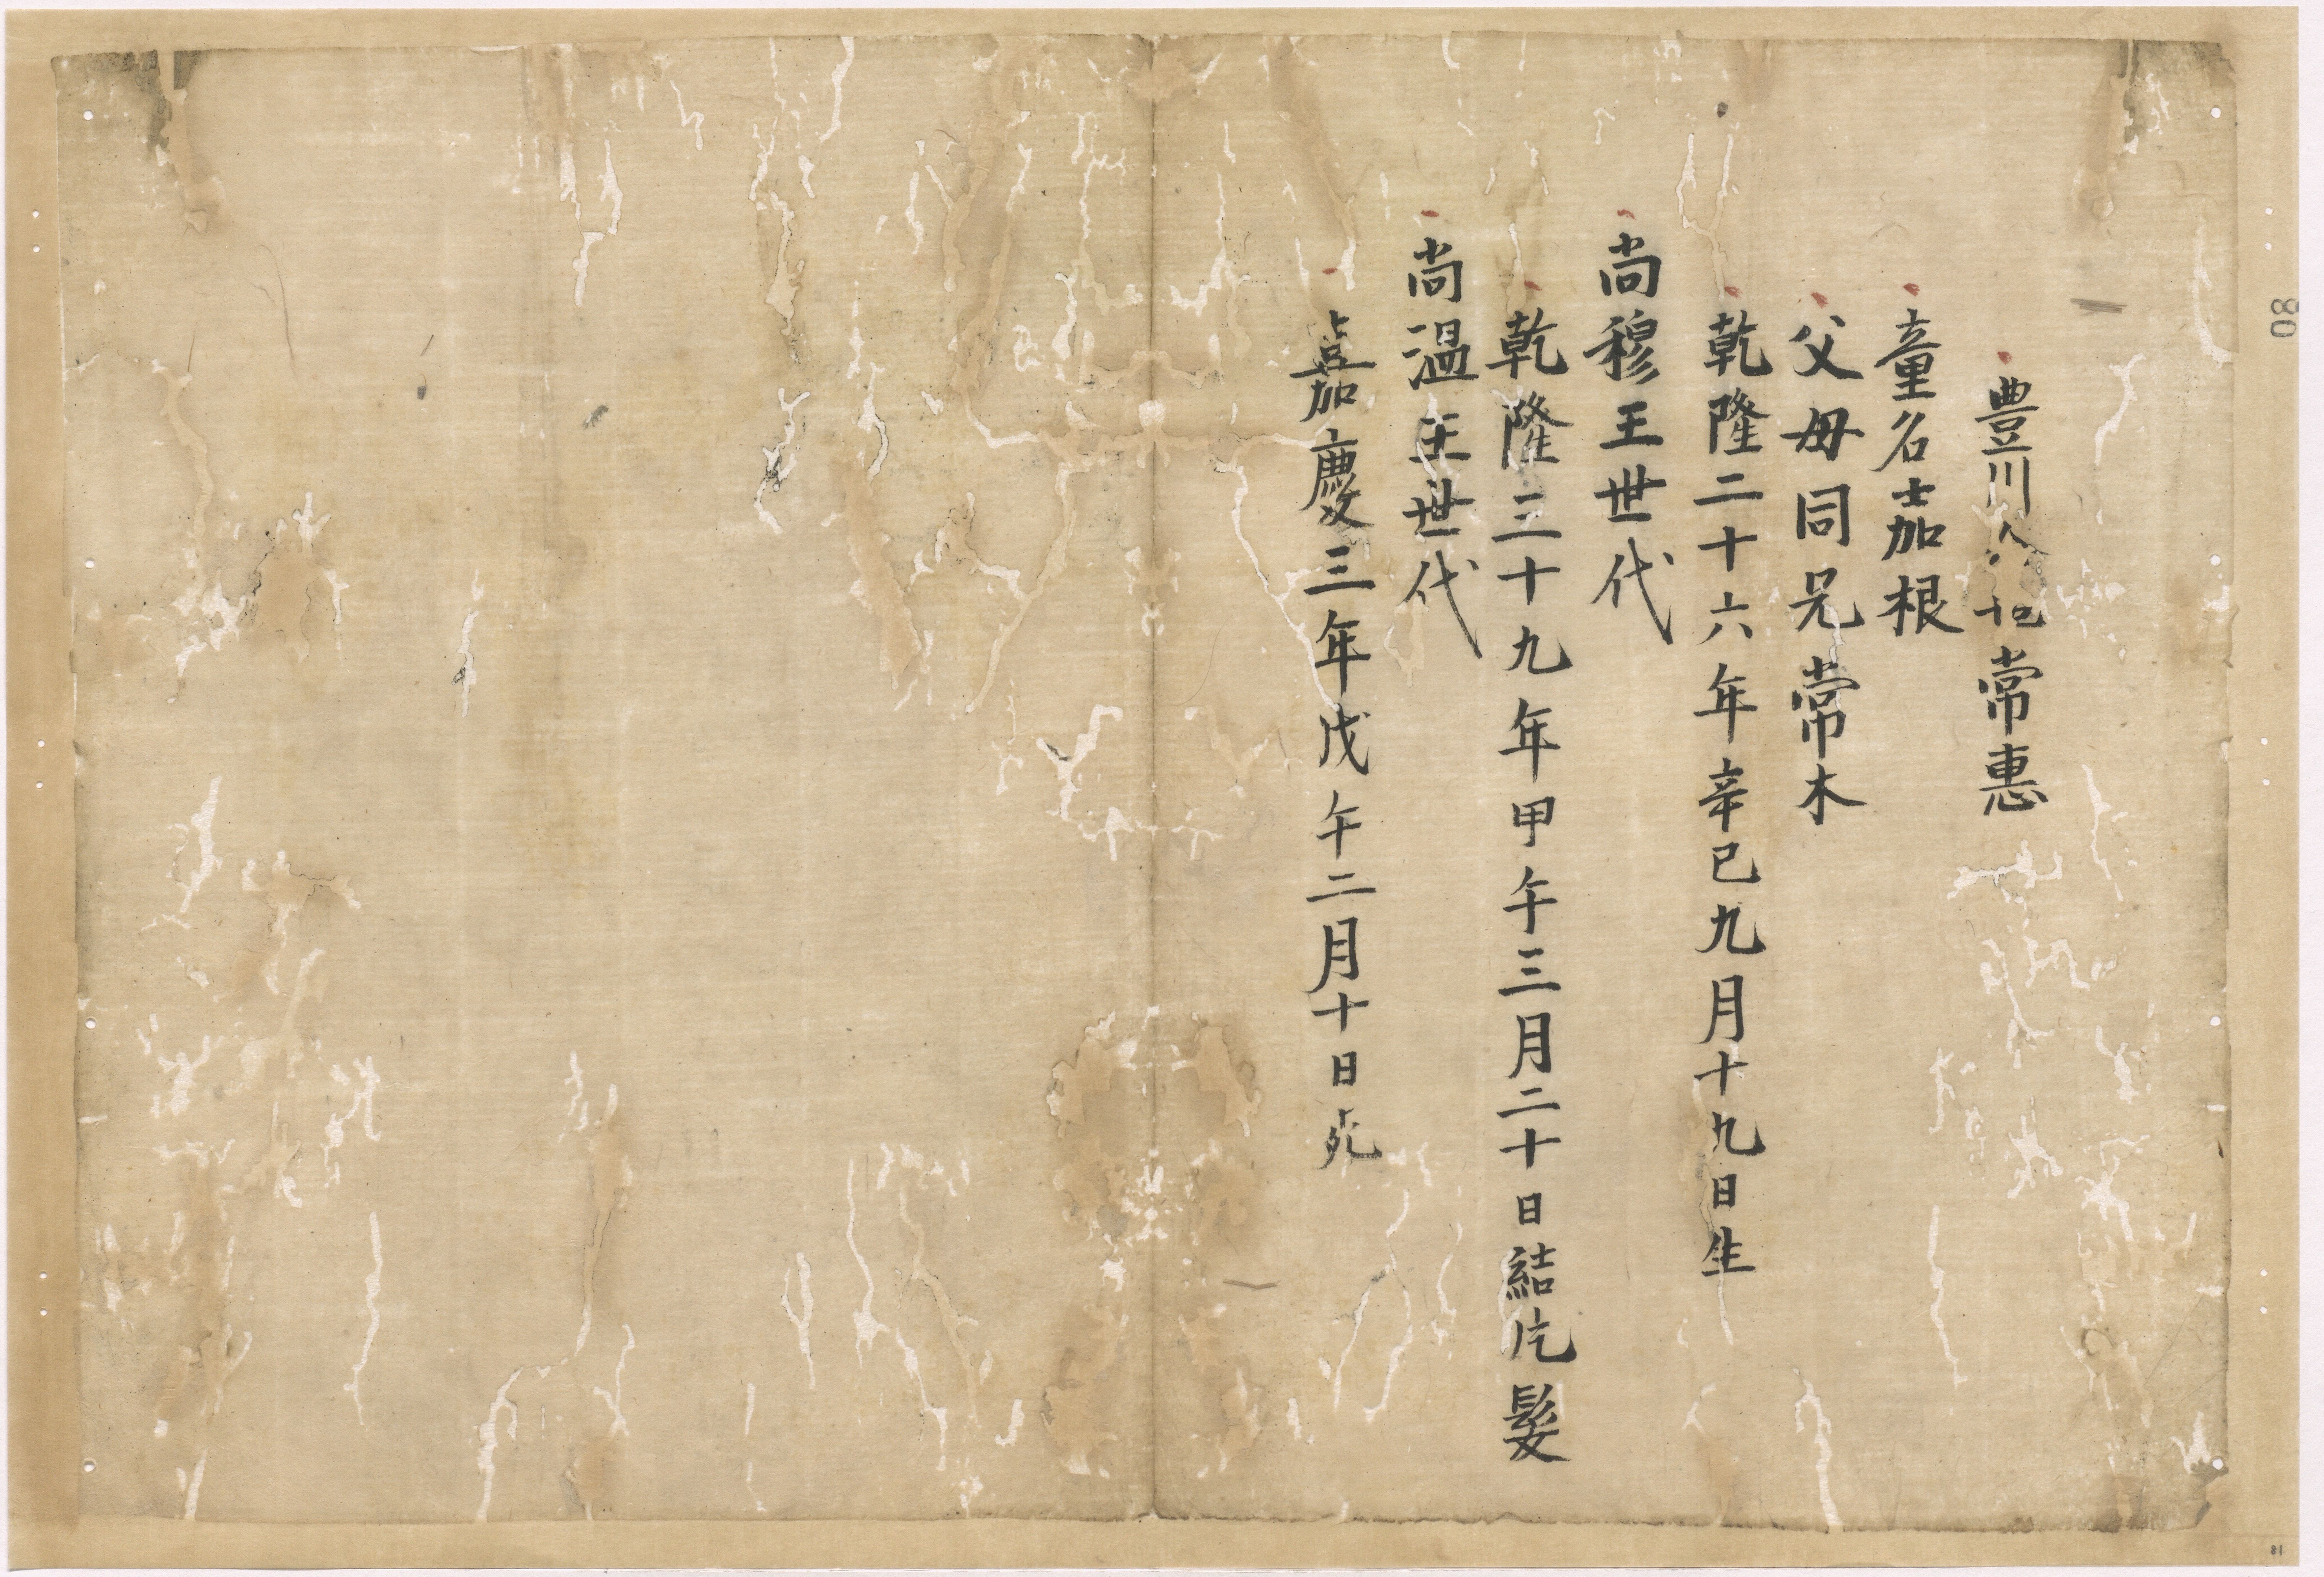 豊川 常惠
童名嘉根
父母同兄常木
乾隆二十六年辛巳九月十九日生
尚穆王世代
乾隆三十九年甲午三月二十日結片髮
尚温王世代
嘉慶三年戊午二月十日死
80
81